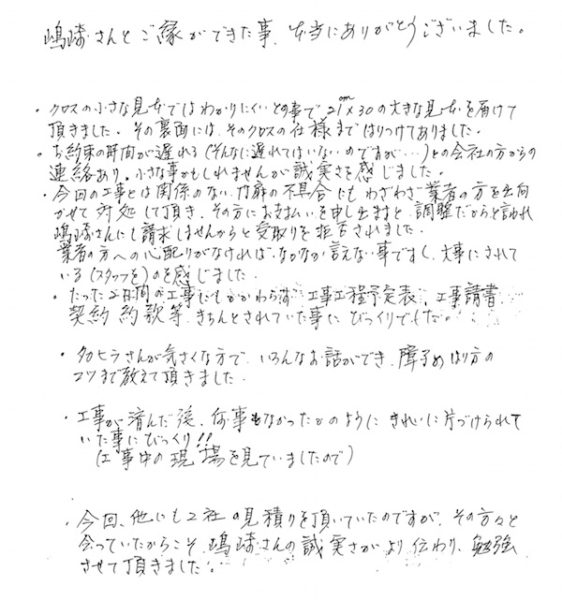 嶋﨑さんとご縁ができた事、本当にありがとうございました。
・クロスの小さな見本ではわかりにくいとの事で21cm×30の大きな見本を届けて
頂きました。その裏面には、そのクロスの仕様まではりつけてありました。
・お約束の時間が遅れる(そんなに遅れてはいないのですが…)との会社の方からの
連絡あり。小さな事かもしれませんが誠実さを感じました。
・今回の工事とは関係のない、の不具合にもわざわざ業者の方を出向
かせて対処して頂き、その方にお支払いを申し出ますと、調整だからと言われ
嶋﨑さんにし請求しませんからと受取りを拒否されました。
業者の方への心配りがなければ、なかなか言えない事ですし、大事にされて
いる(スタッフを)のを感じました。
・たった2日間の工事にもかかわらず、工事工程予定表、工事請書、
契約約款等、きちんとされていた事にびっくりでした。
・タカヒラさんが気さくな方で、いろんなお話ができ、障子のはり方の
コツまで教えて頂きました。
・工事が済んだ後、何事もなかったかのようにきれいに片づけられて
いた事にびっくり!!
(工事中の現場を見ていましたので)
・今回、他にも2社の見積りを頂いていたのですが、その方々と
会っていたからこそ、嶋﨑さんの誠実さがより伝わり、勉強
させて頂きました。